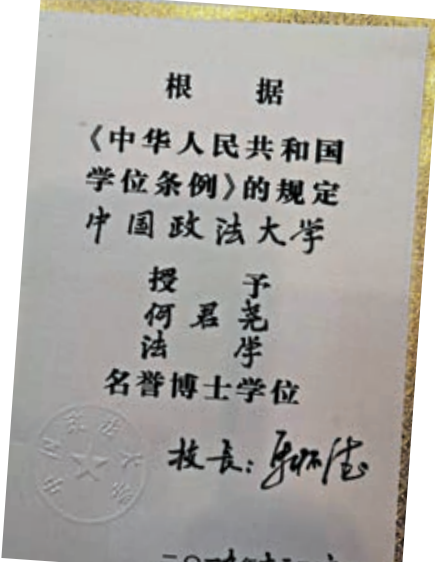 根 据
《中华人民共和国
学位条例》的规定
中国政法大学
授 予
何君尧
法 学
名誉博士学位
校长: